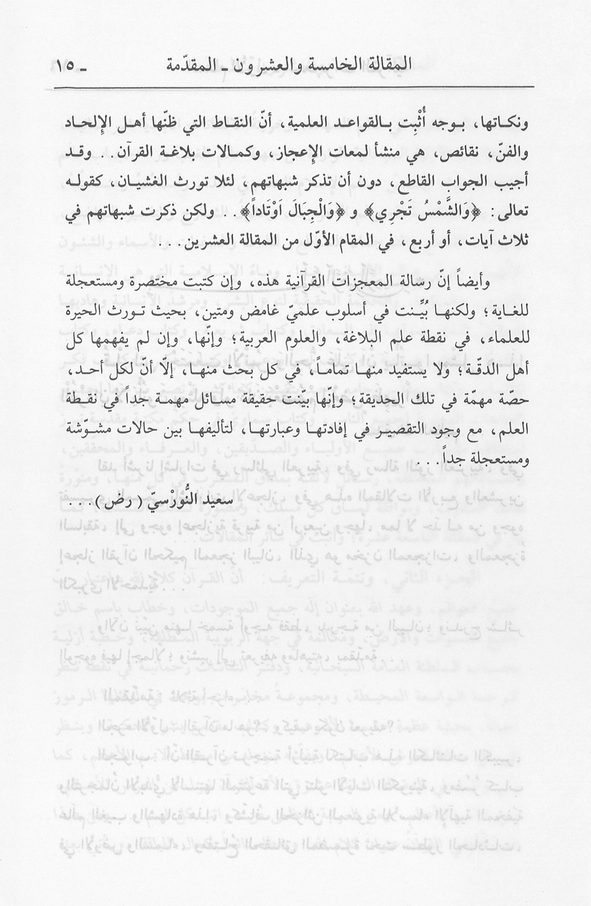 المقالة الخامسة والعشرون ـ المقدّمة ـ ١٥
ونكاتها، بوجه أُثْبِت بالقواعد العلمية، أنّ النقاط التي ظنّها أهل الإلحاد
والفنّ، نقائص، هي منشأ لمعات الإعجاز، وكمالات بلاغة القرآن.. وقد
أجيب الجواب القاطع، دون أن تذكر شبهاتهم، لئلا تورث الغشيان، كقوله
تعالى: ﴿وَالشَّمْسُ تَجْرِي﴾ و ﴿وَالْجِبَالَ اَوْتَاداً﴾.. ولكن ذكرت شبهاتهم في
ثلاث آيات، أو أربع، في المقام الأوّل من المقالة العشرين...
وأيضاً إنّ رسالة المعجزات القرآنية هذه، وإن كتبت مختصرة ومستعجلة
للغاية؛ ولكنها بُيِّنت في أسلوب علميّ غامض ومتين، بحيث تورث الحيرة
للعلماء، في نقطة علم البلاغة، والعلوم العربية؛ وإنّها، وإن لم يفهمها كل
أهل الدقّة؛ ولا يستفيد منها تماماً، في كل بحث منها، إلّا أنّ لكل أحد،
حصّة مهمّة في تلك الحديقة؛ وإنّها بيّنت حقيقة مسائل مهمة جداً في نقطة
العلم، مع وجود التقصير في إفادتها وعبارتها، لتأليفها بين حالات مشوّشة
ومستعجلة جداً...
سعيد النُّورْسيّ (رض)...